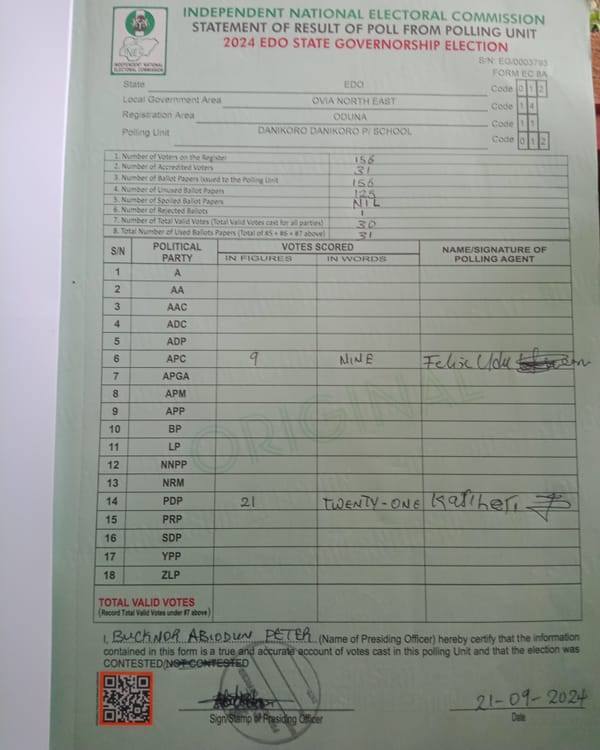 INDEPENDENT NATIONAL ELECTORAL COMMISSION
STATEMENT OF RESULT OF POLL FROM POLLING UNIT
2024 EDO STATE GOVERNORSHIP ELECTION
INEC
INDEPENDENT NATIONAL ELECTORAL COMMISSION
S/N: EG/0003793
FORM EC 8A
State EDO Code 0 1 2
Local Government Area OVIA NORTH EAST Code 1 4
Registration Area ODUNA Code 1 1
Polling Unit DANIKORO DANIKORO P/ SCHOOL Code 0 1 2
1. Number of Voters on the Register 156
2. Number of Accredited Voters 31
3. Number of Ballot Papers Issued to the Polling Unit 156
4. Number of Unused Ballot Papers 125
5. Number of Spoiled Ballot Papers NIL
6. Number of Rejected Ballots 1
7. Number of Total Valid Votes (Total Valid Votes cast for all parties) 30
8. Total Number of Used Ballots Papers (Total of #5 + #6 + #7 above) 31
S/N POLITICAL PARTY VOTES SCORED NAME/SIGNATURE OF POLLING AGENT
IN FIGURES IN WORDS
1 A
2 AA
3 AAC
4 ADC
5 ADP
6 APC 9 NINE Felix Udu
7 APGA
8 APM
9 APP
10 BP
11 LP
12 NNPP
13 NRM
14 PDP 21 TWENTY-ONE
15 PRP
16 SDP
17 YPP
18 ZLP
ORIGINAL
TOTAL VALID VOTES
(Record Total Valid Votes under #7 above)
I, BUCKNOR ABIODUN PETER (Name of Presiding Officer) hereby certify that the information
contained in this form is a true and accurate account of votes cast in this polling Unit and that the election was
CONTESTED/NOT CONTESTED
21-09-2024
Sign/Stamp of Presiding Officer Date